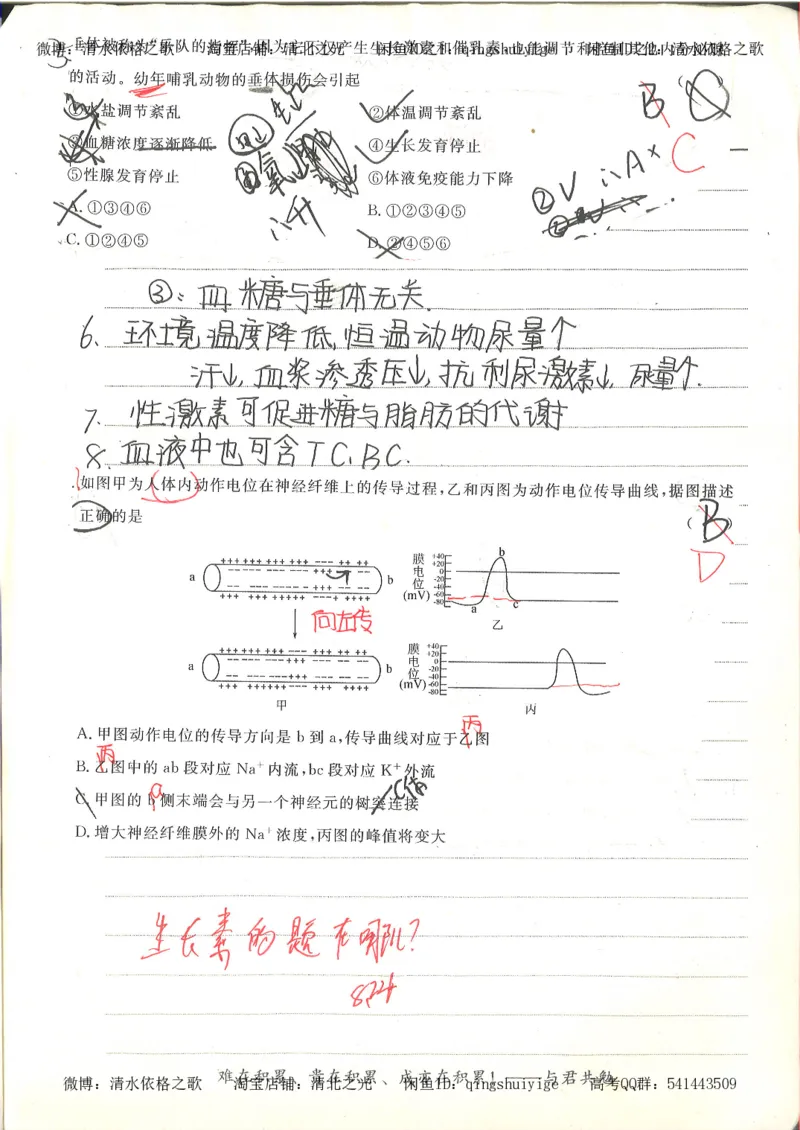 微博：清水依格之歌 淘宝店铺：清北之光 闲鱼ID：qingshuiyige
垂体被称为“乐队的指挥”,因为它不仅产生生长激素和催乳素,也能调节和控制其他内分泌腺
的活动。幼年哺乳动物的垂体损伤会引起
B C
①水盐调节紊乱 ②体温调节紊乱
③血糖浓度逐渐降低 ④生长发育停止
⑤性腺发育停止 ⑥体液免疫能力下降
A. ①③④⑥ B. ①②③④⑤
C. ①②④⑤ D. ②④⑤⑥
②√ ∴A×
③：血糖与垂体无关.
6、环境温度降低,恒温动物尿量个
汗↓,血浆渗透压↓,抗利尿激素↓,尿量个.
7、性激素可促进糖与脂肪的代谢
8、血液中也可含TC、BC.
如图甲为人体内动作电位在神经纤维上的传导过程,乙和丙图为动作电位传导曲线,据图描述
正确的是 ( B )
D
a b
向左传
a b
甲
膜电位(mV)
+40
+20
0
-20
-40
-60
-80
a b c
乙
膜电位(mV)
+40
+20
0
-20
-40
-60
-80
丙
丙
A. 甲图动作电位的传导方向是 b 到 a,传导曲线对应于乙图
丙
B. 乙图中的 ab 段对应 Na⁺ 内流,bc 段对应 K⁺ 外流
a
C. 甲图的 b 侧末端会与另一个神经元的树突连接
D. 增大神经纤维膜外的 Na⁺ 浓度,丙图的峰值将变大
生长素的题在哪儿?
难在积累、贵在积累、成亦在积累! ——与君共勉
微博：清水依格之歌 淘宝店铺：清北之光 闲鱼ID：qingshuiyige 高考QQ群：541443509